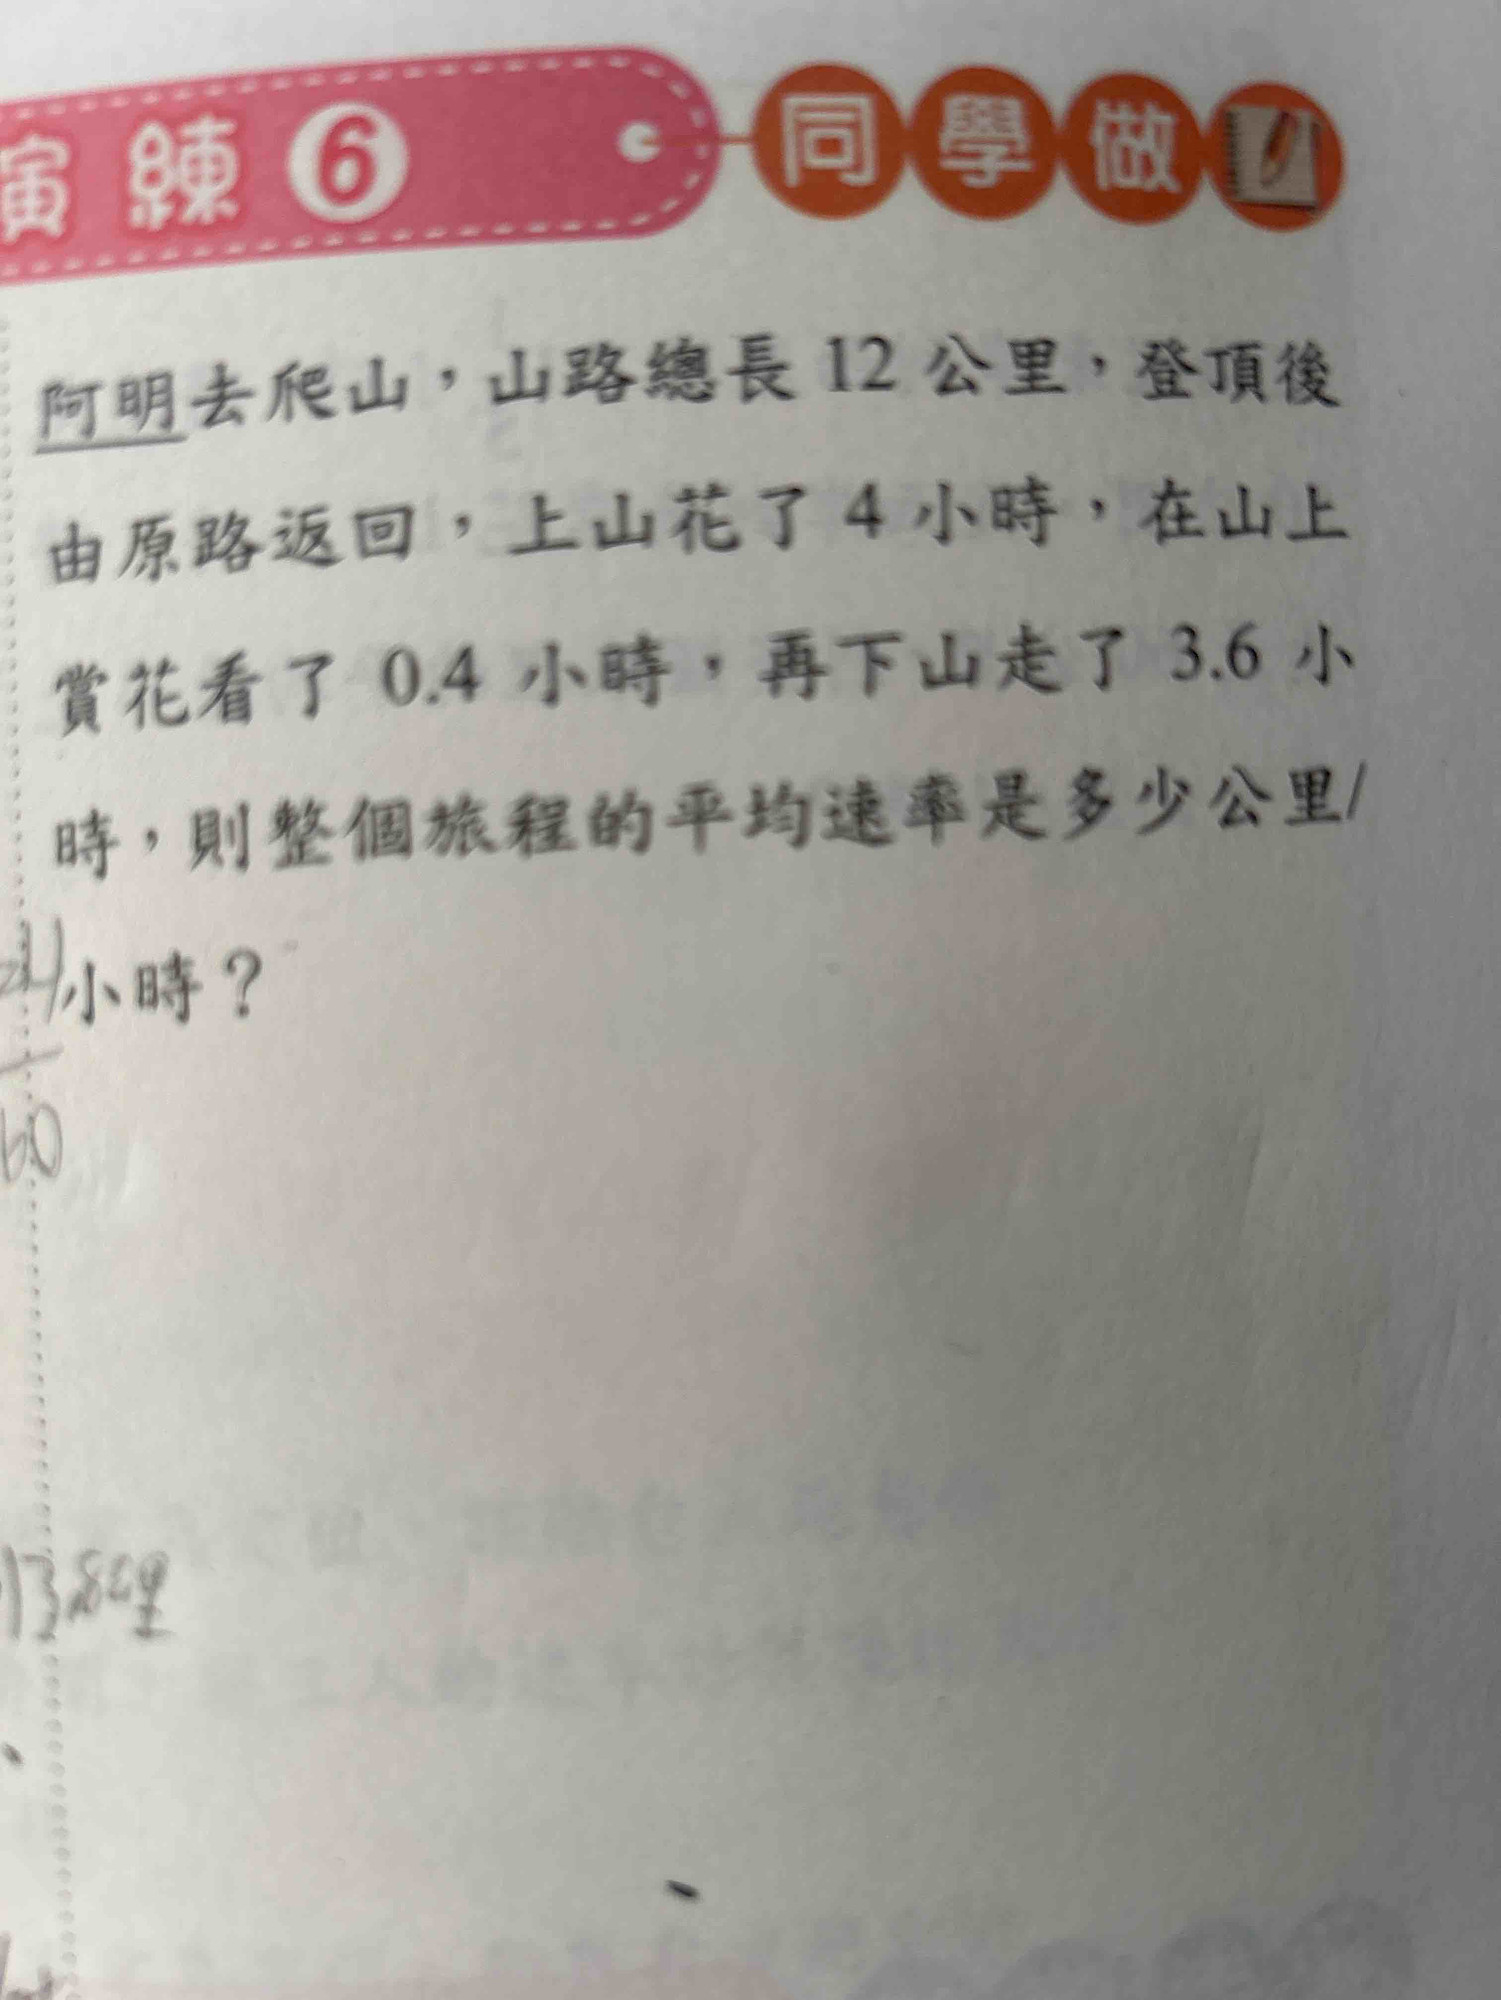 演練6 同學做
阿明去爬山，山路總長 12 公里，登頂後
由原路返回，上山花了 4 小時，在山上
賞花看了 0.4 小時，再下山走了 3.6 小
時，則整個旅程的平均速率是多少公里/
小時？
60
公里